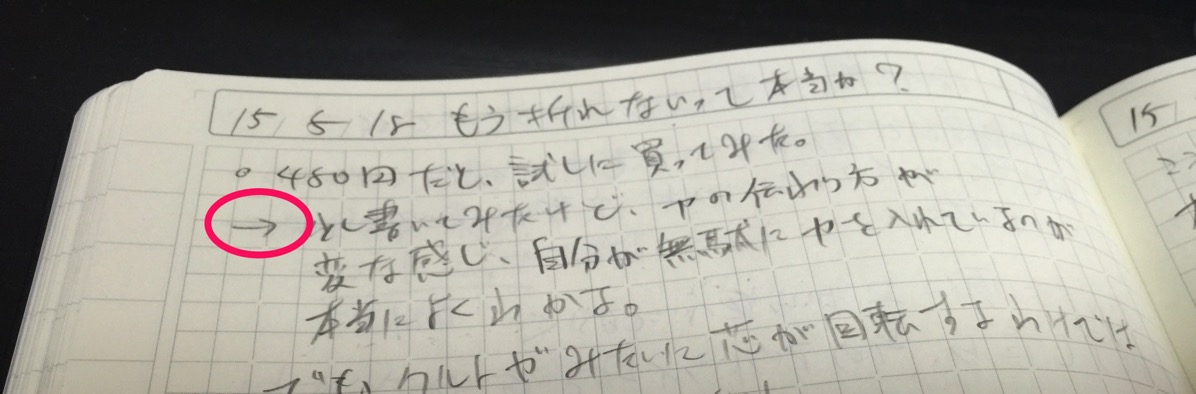 15 5 18 もう折れないって本当か?
。480円だと、試しに買ってみた。
→ 少し書いてみたけど、力の伝わり方が
変な感じ、自分が無駄に力を入れているのが
本当によくわかる。
でも、クルトガみたいに芯が回転するわけでは
15